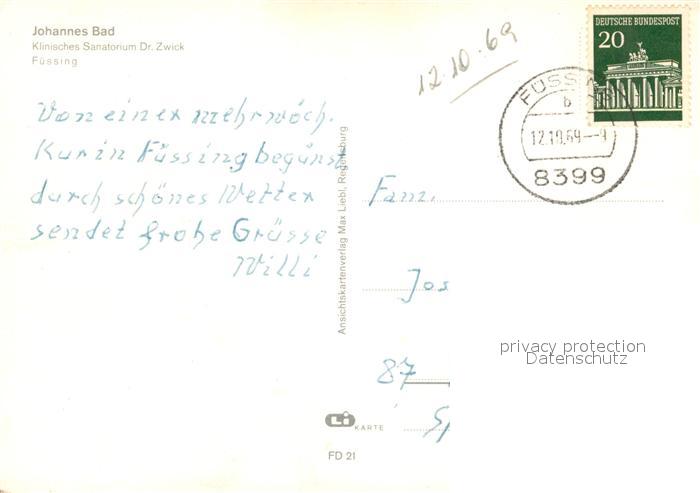 Johannes Bad
Klinisches Sanatorium Dr. Zwick
Füssing
12.10.69
DEUTSCHE BUNDESPOST
20
FÜSSI
b
12.10.69--9
8399
Von einer mehrwöch.
Kur in Füssing begünst
durch schönes Wetter
sendet frohe Grüsse
Willi
Ansichtskartenverlag Max Liebl, Regensburg
Fam.
Jos
87
Sp
privacy protection
Datenschutz
Li KARTE
FD 21